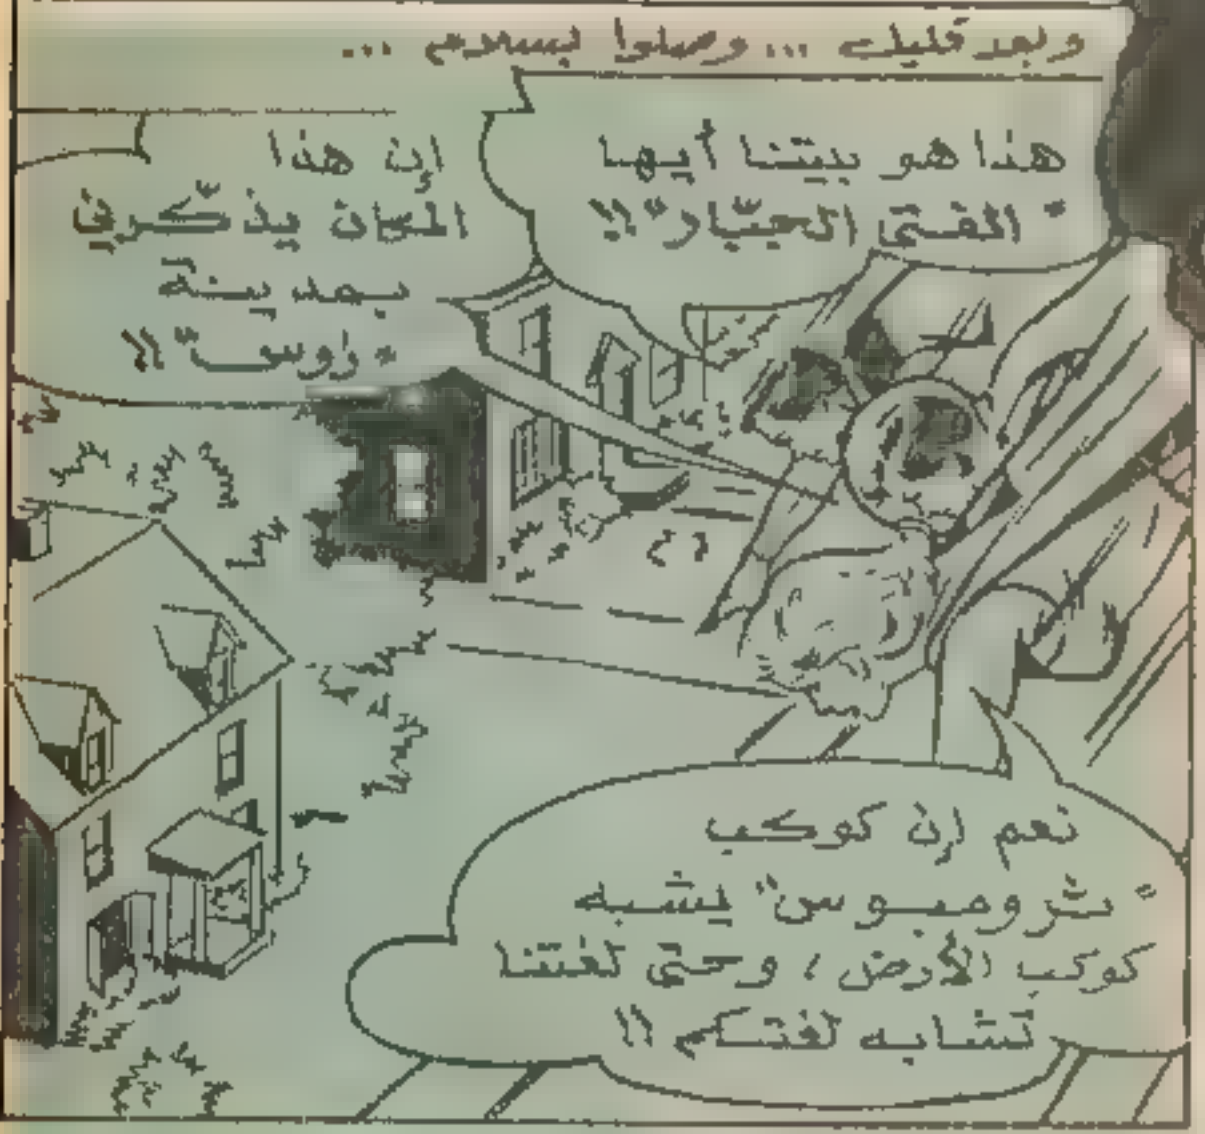 وبعد قليل ... وصلوا بسلام ...
هذا هو بيتنا أيها
"الفتى الجبّار"!!
إن هذا
المكان يذكّرني
بمدينة
"روس"!!
نعم إن كوكب
"ثرومبوس" يشبه
كوكب الأرض، وحتى لغتنا
تشابه لغتكم!!